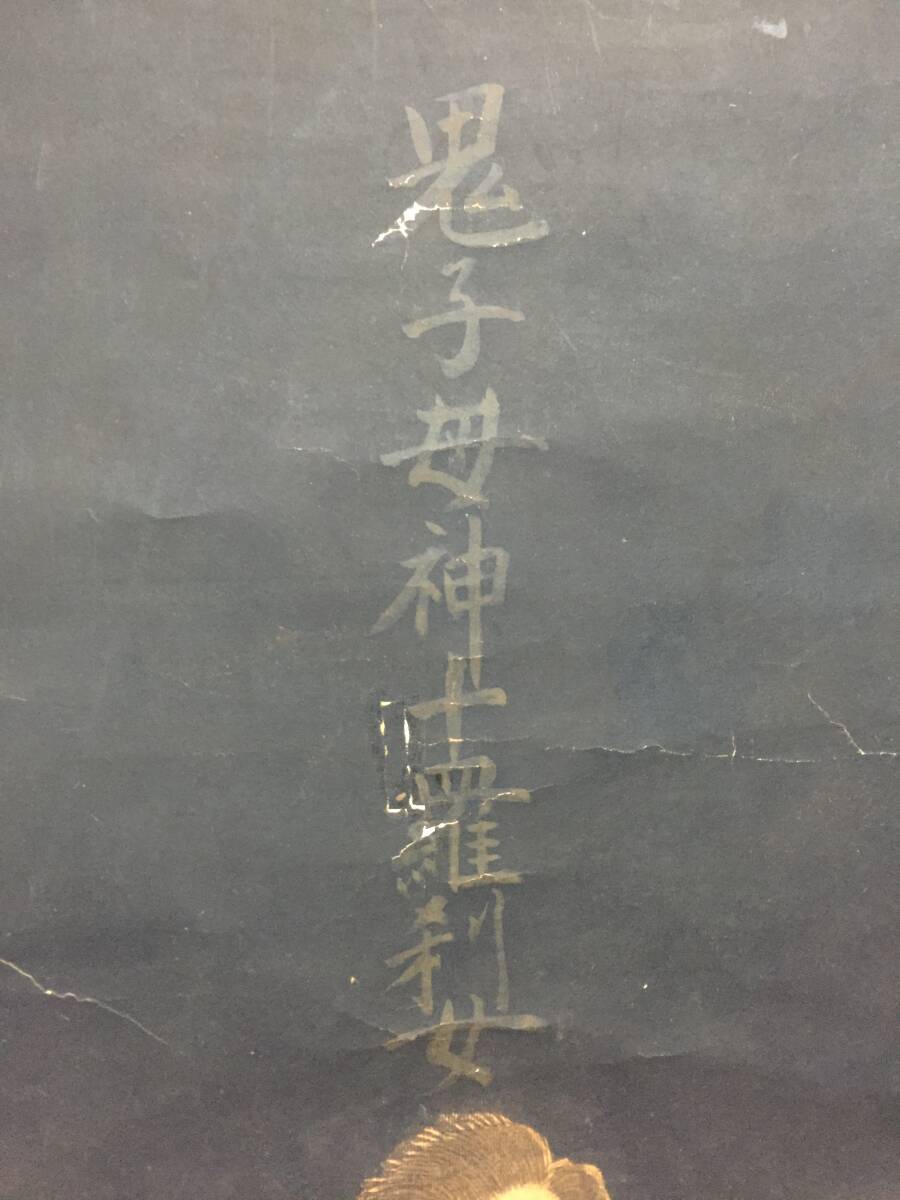 鬼子母神十羅刹女